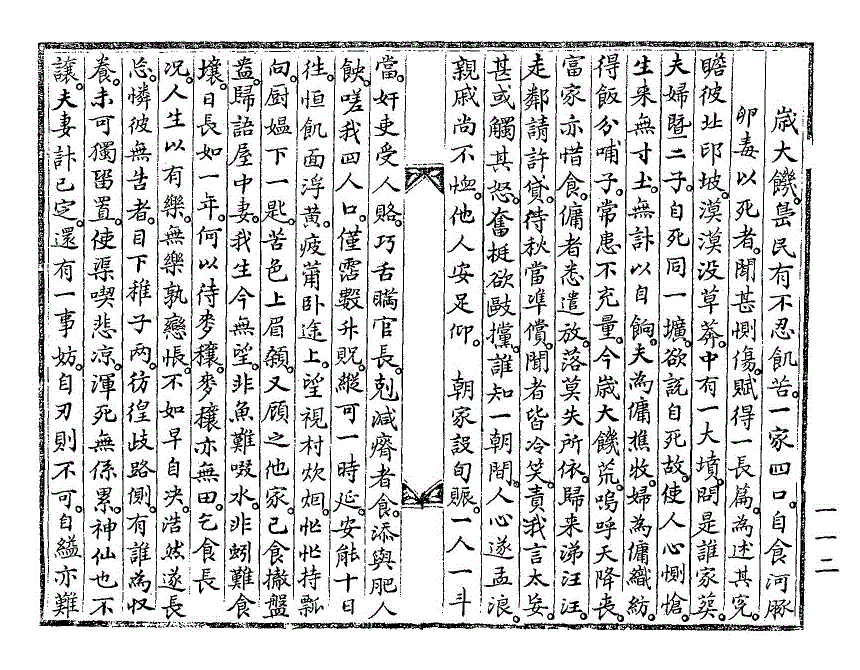 歲大饑。島民有不忍飢苦。一家四口。自食河豚
卵毒以死者。聞甚惻傷。賦得一長篇。為述其寃。
瞻彼北邙坡。漠漠沒草莽。中有一大墳。問是誰家葬。
夫婦曁二子。自死同一壙。欲說自死故。使人心惻愴。
生來無寸土。無計以自餉。夫為傭樵牧。婦為傭織紡。
得飯分哺子。常患不充量。今歲大饑荒。嗚呼天降喪。
富家亦惜食。傭者悉遣放。落莫失所依。歸來涕汪汪。
走鄰請許貸。待秋當準償。聞者皆冷笑。責我言太妄。
甚或觸其怒。奮挺欲敺攩。誰知一朝間。人心遂孟浪。
親戚尚不恤。他人安足仰。 朝家設旬賑。一人一斗
當。奸吏受人賂。巧舌瞞官長。剋減瘠者食。添與肥人
餉。嗟我四人口。僅霑數升貺。縱可一時延。安能十日
徃。恒飢面浮黃。疲薾臥途上。望視村炊烟。怭怭持瓢
向。厨媼下一匙。苦色上眉顙。又顧之他家。已食撤盤
盎。歸語屋中妻。我生今無望。非魚難啜水。非蚓難食
壤。日長如一年。何以待麥穰。麥穰亦無田。乞食長
况。人生以有樂。無樂孰戀悵。不如早自决。浩然遂長
忘。憐彼無告者。目下稚子兩。彷徨歧路側。有誰為収
養。未可獨留置。使渠喫悲凉。渾死無係累。神仙也不
讓。夫妻計已定。還有一事妨。自刃則不可。自縊亦難
一一二